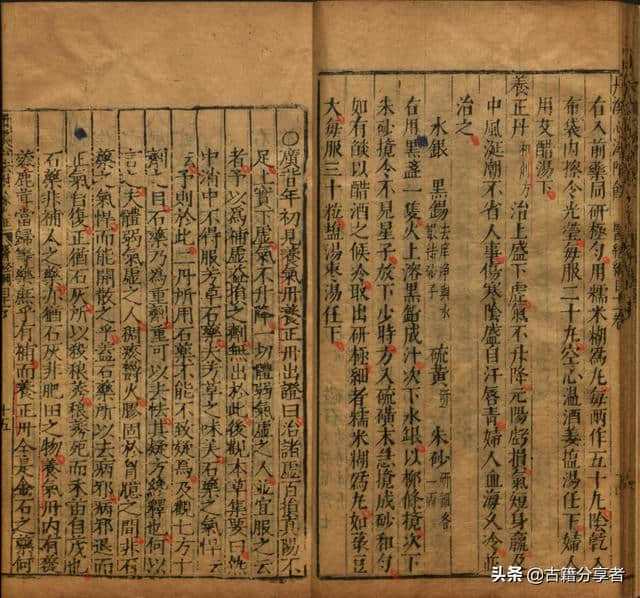 右入前藥同研極勻用糯米糊爲丸每兩作五十丸陰乾入
布袋內擦令光瑩每服二十丸空心溫酒薑鹽湯任下婦人
用艾醋湯下
養正丹 治上盛下虛氣不升降元陽虧損氣短身羸及
中風涎潮不省人事傷寒陰盛自汗唇青婦人血海久冷並
治之
水銀 黑錫 硫黃 朱砂
右用黑盞一隻火上溶黑鉛成汁次下水銀以柳條攪次下
朱砂攪令不見星子放下少時方入硫磺末急攪成砂和勻
如有燄以醋洒之候冷取出研極細煮糯米糊爲丸如菉豆
大每服三十粒鹽湯棗湯任下
○廣昔年初見養氣丹養正丹出證曰治諸虛百損真陽不
足上實下虛氣不升降一切體弱氣虛之人並宜服之云
者予以爲補虛益損之劑無出於此後觀本草集要曰
中消中不得服芳草石藥夫芳草之味美石藥之氣悍
云予則於此二丹所用石藥不能不致疑焉及觀七方十
劑之目石藥乃爲重劑重可以去怯其疑方繹也何以
言之夫體弱氣虛之人稠痰鬱火膠固於胷臆之間非石
藥之氣悍而能開散之乎蓋石藥所以去病邪病邪退而
正氣自復正猶石灰所以殺稂莠稂莠死而禾苗自茂也
石藥非補人之藥亦猶石灰非肥田之物養氣丹內有
鹿茸當歸等藥庶乎有補而養正丹全是金石之藥何
头条 @古籍分享者